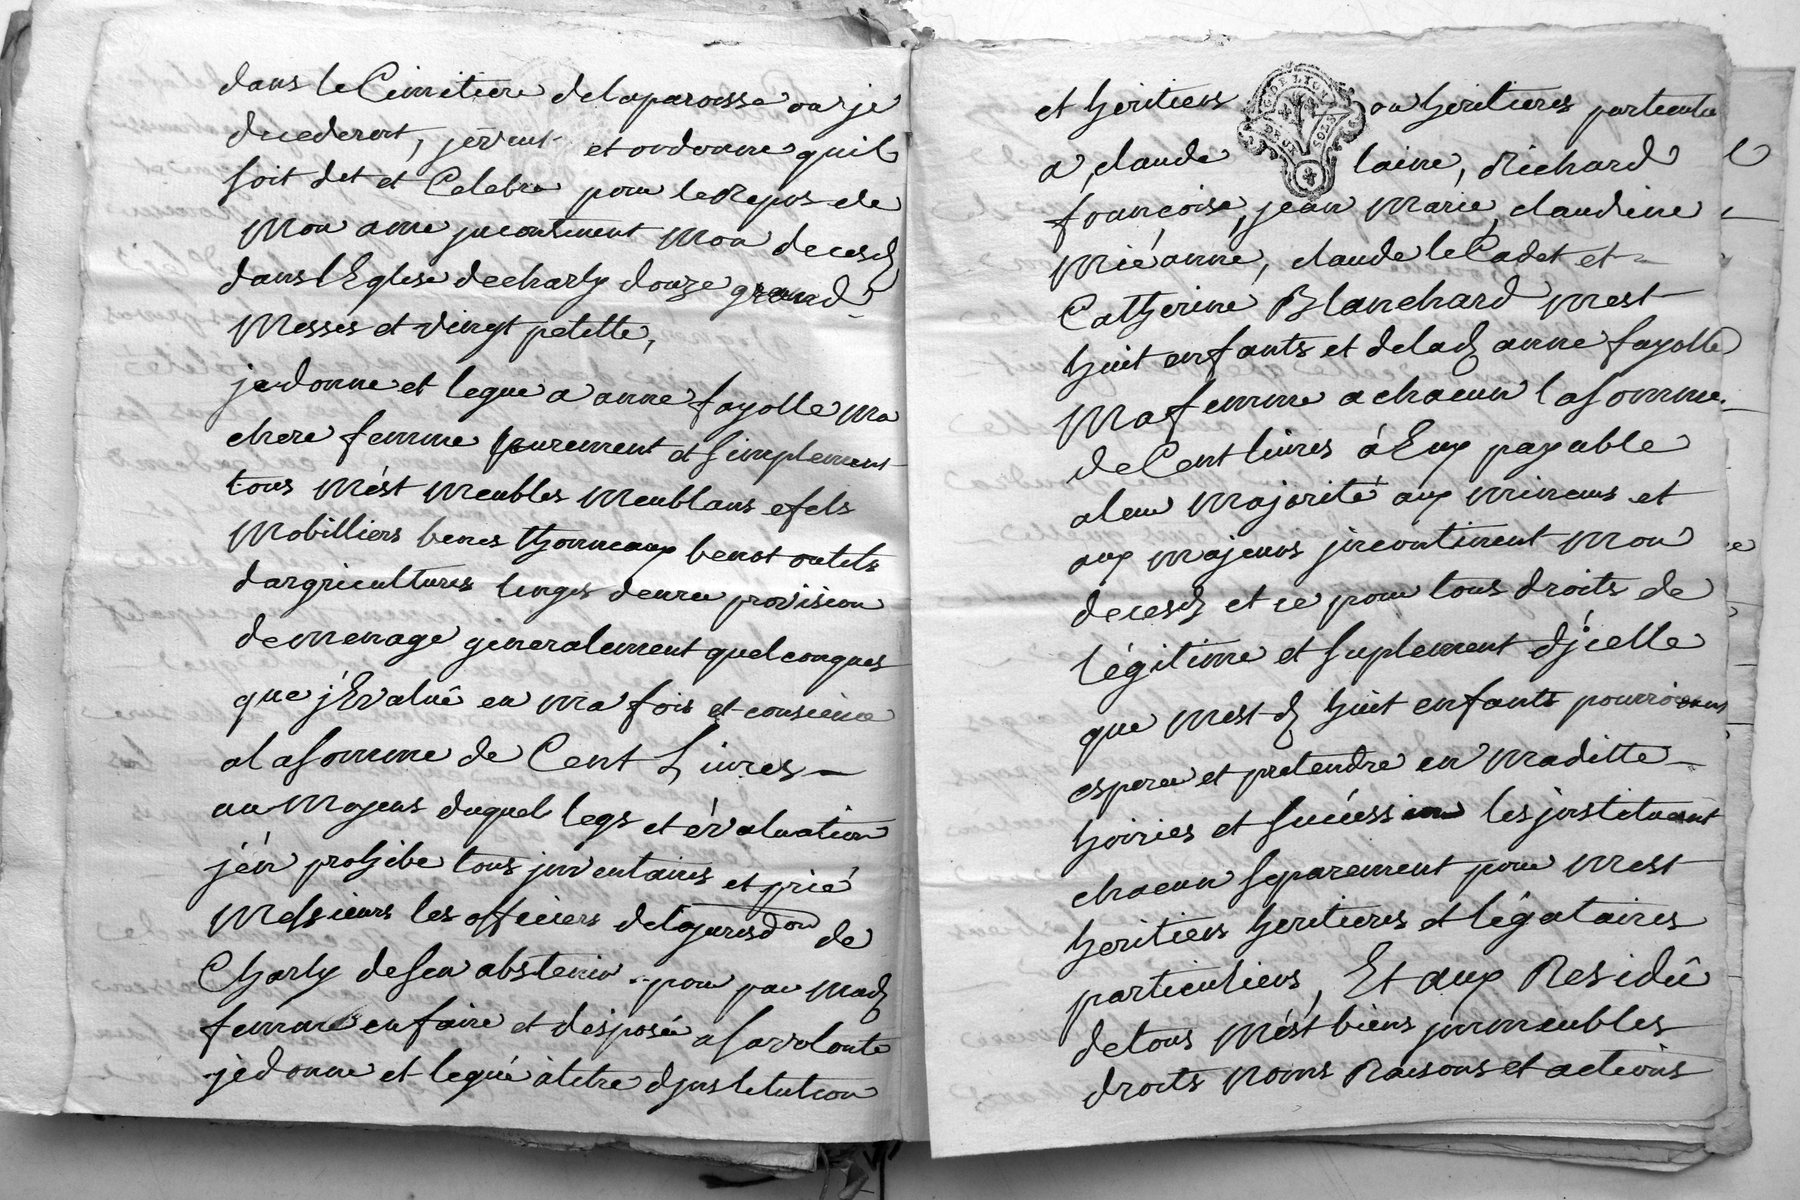 dans le Cimitiere delaparoisse ou je
decederert, jeveut et ordonne quil
soit det et Celebre pour le Repos de
Mon ame jncontinent Mon decesd
dans lEglise decharly douze grand
Messes et vingt petitte,
je donne et legue a anne fayolle Ma
chere femme purement et simplement
tous Mést Meubles Meublans efets
Mobilliers benes thonneaux benot outils
dargricultures linges denre provision
demenage generalement quelconques
que j'Evaluê en Ma fois et consience
alasomme de Cent Livres
au Moyens duquel legs et évaluation
jén prohibe tous jnventaires et prié
Messieurs les officiers delajurisdon de
Charly desen abstenir pour par Mad
femme en faire et désposé asavolonté
jedonne et legué atitre djnstitution
et heritiers GDE LION DEUX SOLS ou heritieres particulie
a, claude laine, Richard
françoise, jean Marie, claudine
Miéanne, claude le Cadet et
Catherine Blanchard Mest
huit enfants et delad anne fayolle
Ma femme a chacun lasomme
de Cent livres á Eux payable
aleur Majorité aux mineurs et
aux Majeurs jncontinent Mon
decesd et ce pour tous droits de
légitime et suplement djcelle
que Mest d huit enfants pourroient
esperer et pretendre en Maditte
hoiries et suécession les jnstituant
chacun separement pour Mest
heritiers heritieres et légataires
particuliers, Et aux Residû
detous Mést biens jmmeubles
droits noms Raisons et actions